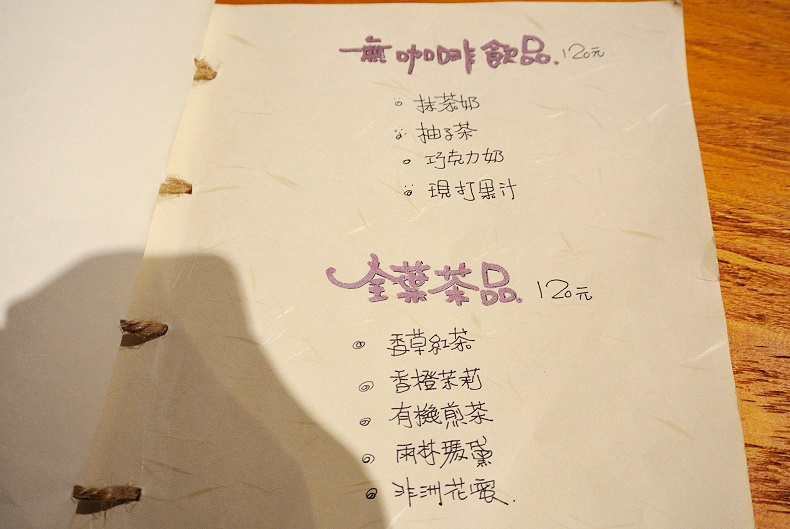 無咖啡飲品. 120元
抹茶奶
柚子茶
巧克力奶
現打果汁
全葉茶品. 120元
香草紅茶
香橙茉莉
有機煎茶
雨林瑪黛
非洲花蜜.